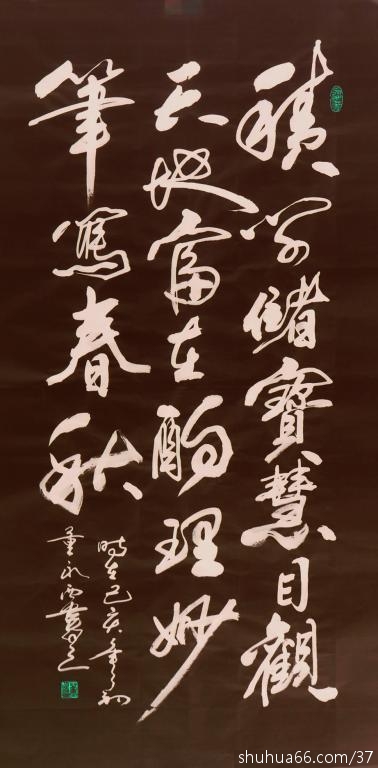 積學儲寶慧目觀
天地富在酌理妙
筆寫春秋
時在己亥
shuhua66.com/37